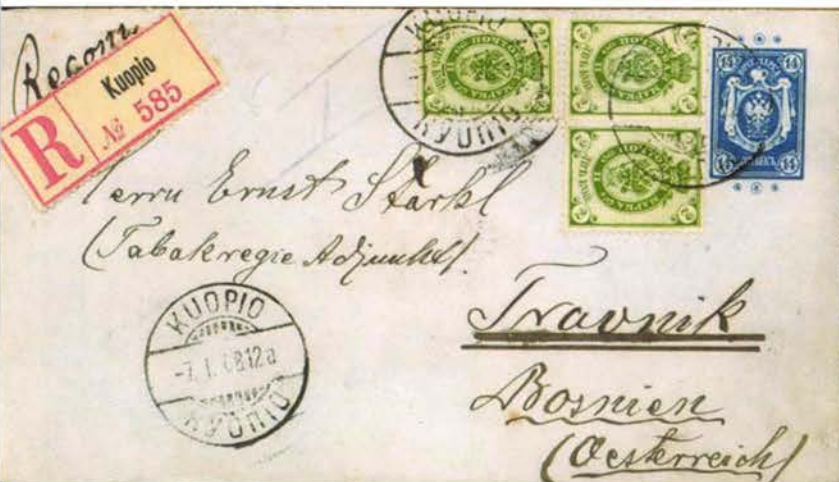 Recom
R
Kuopio
№ 585
KUOPIO
14 14
14 14
Herrn Ernst Stärkl
(Tabakregie Adjunkt).
KUOPIO
-7.I.08.12a
КУОПIО
Travnik
Bosnien
(Oesterreich)